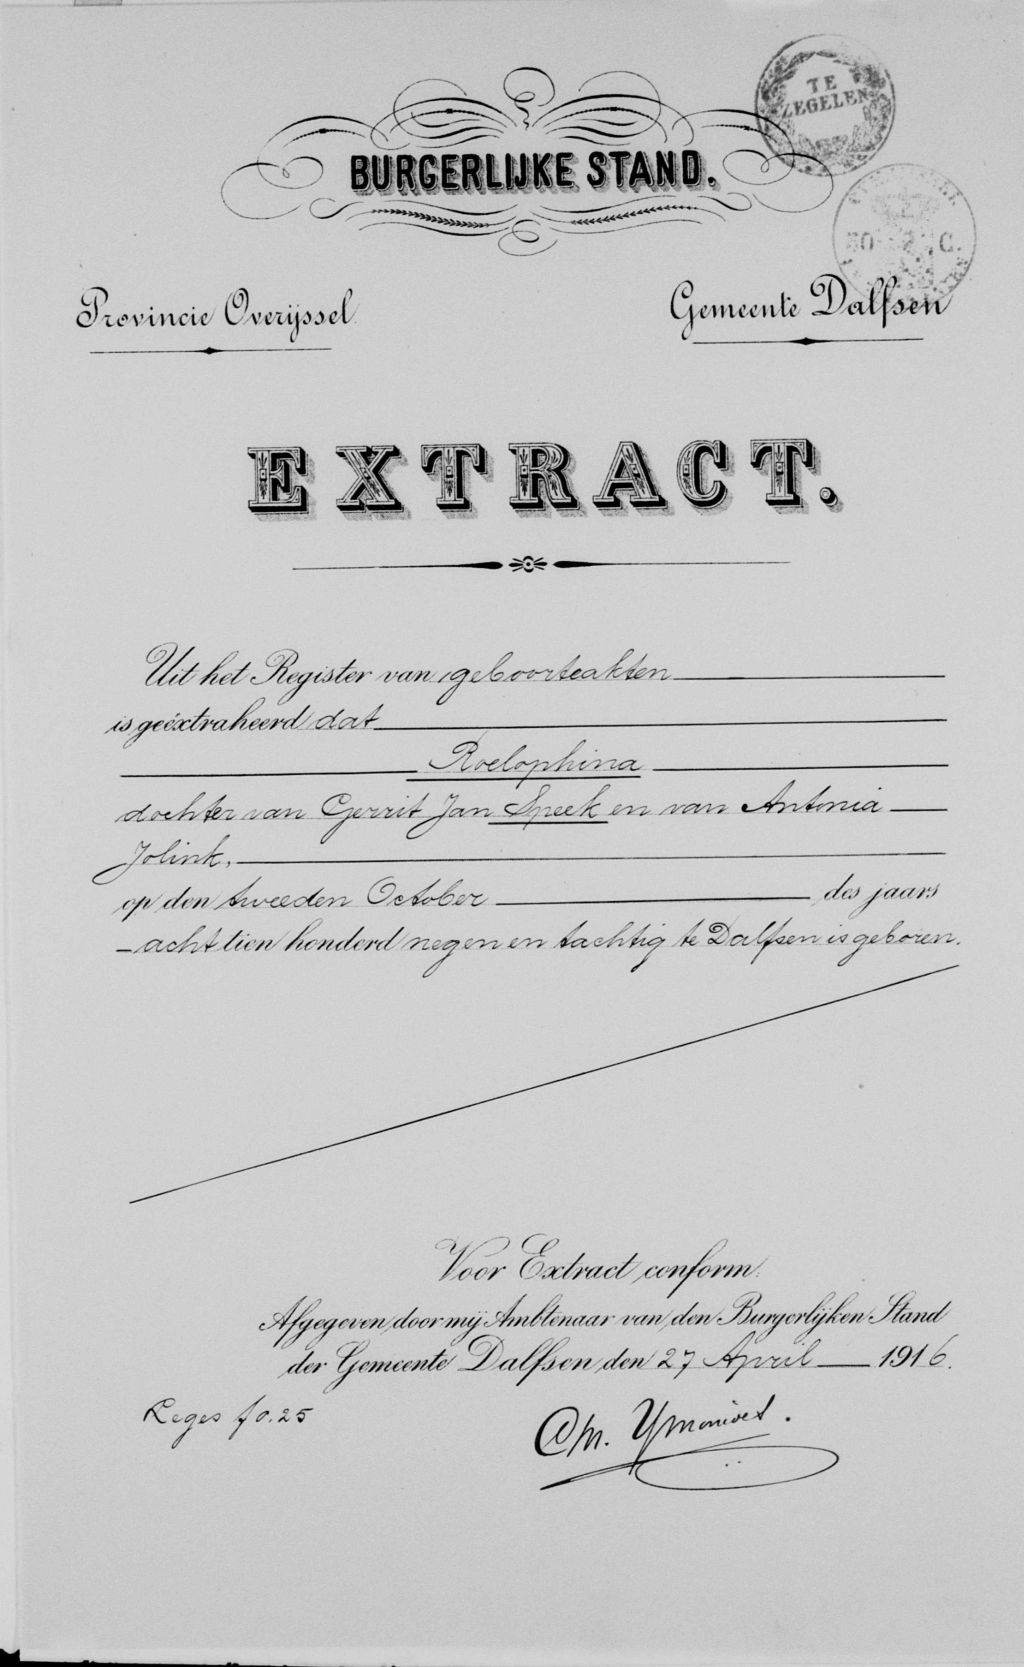 TE
ZEGELEN
BURGERLIJKE STAND.
50 C.
Provincie Overijssel
Gemeente Dalfsen
EXTRACT.
Uit het Register van geboorteakten
is geëxtraheerd dat
Roelophina
dochter van Gerrit Jan Speek en van Antonia
Jolink,
op den tweeden October des jaars
achttien honderd negen en tachtig te Dalfsen is geboren.
Voor Extract conform:
Afgegeven door mij Ambtenaar van den Burgerlijken Stand
der Gemeente Dalfsen den 27 April 1916.
Leges f 0.25